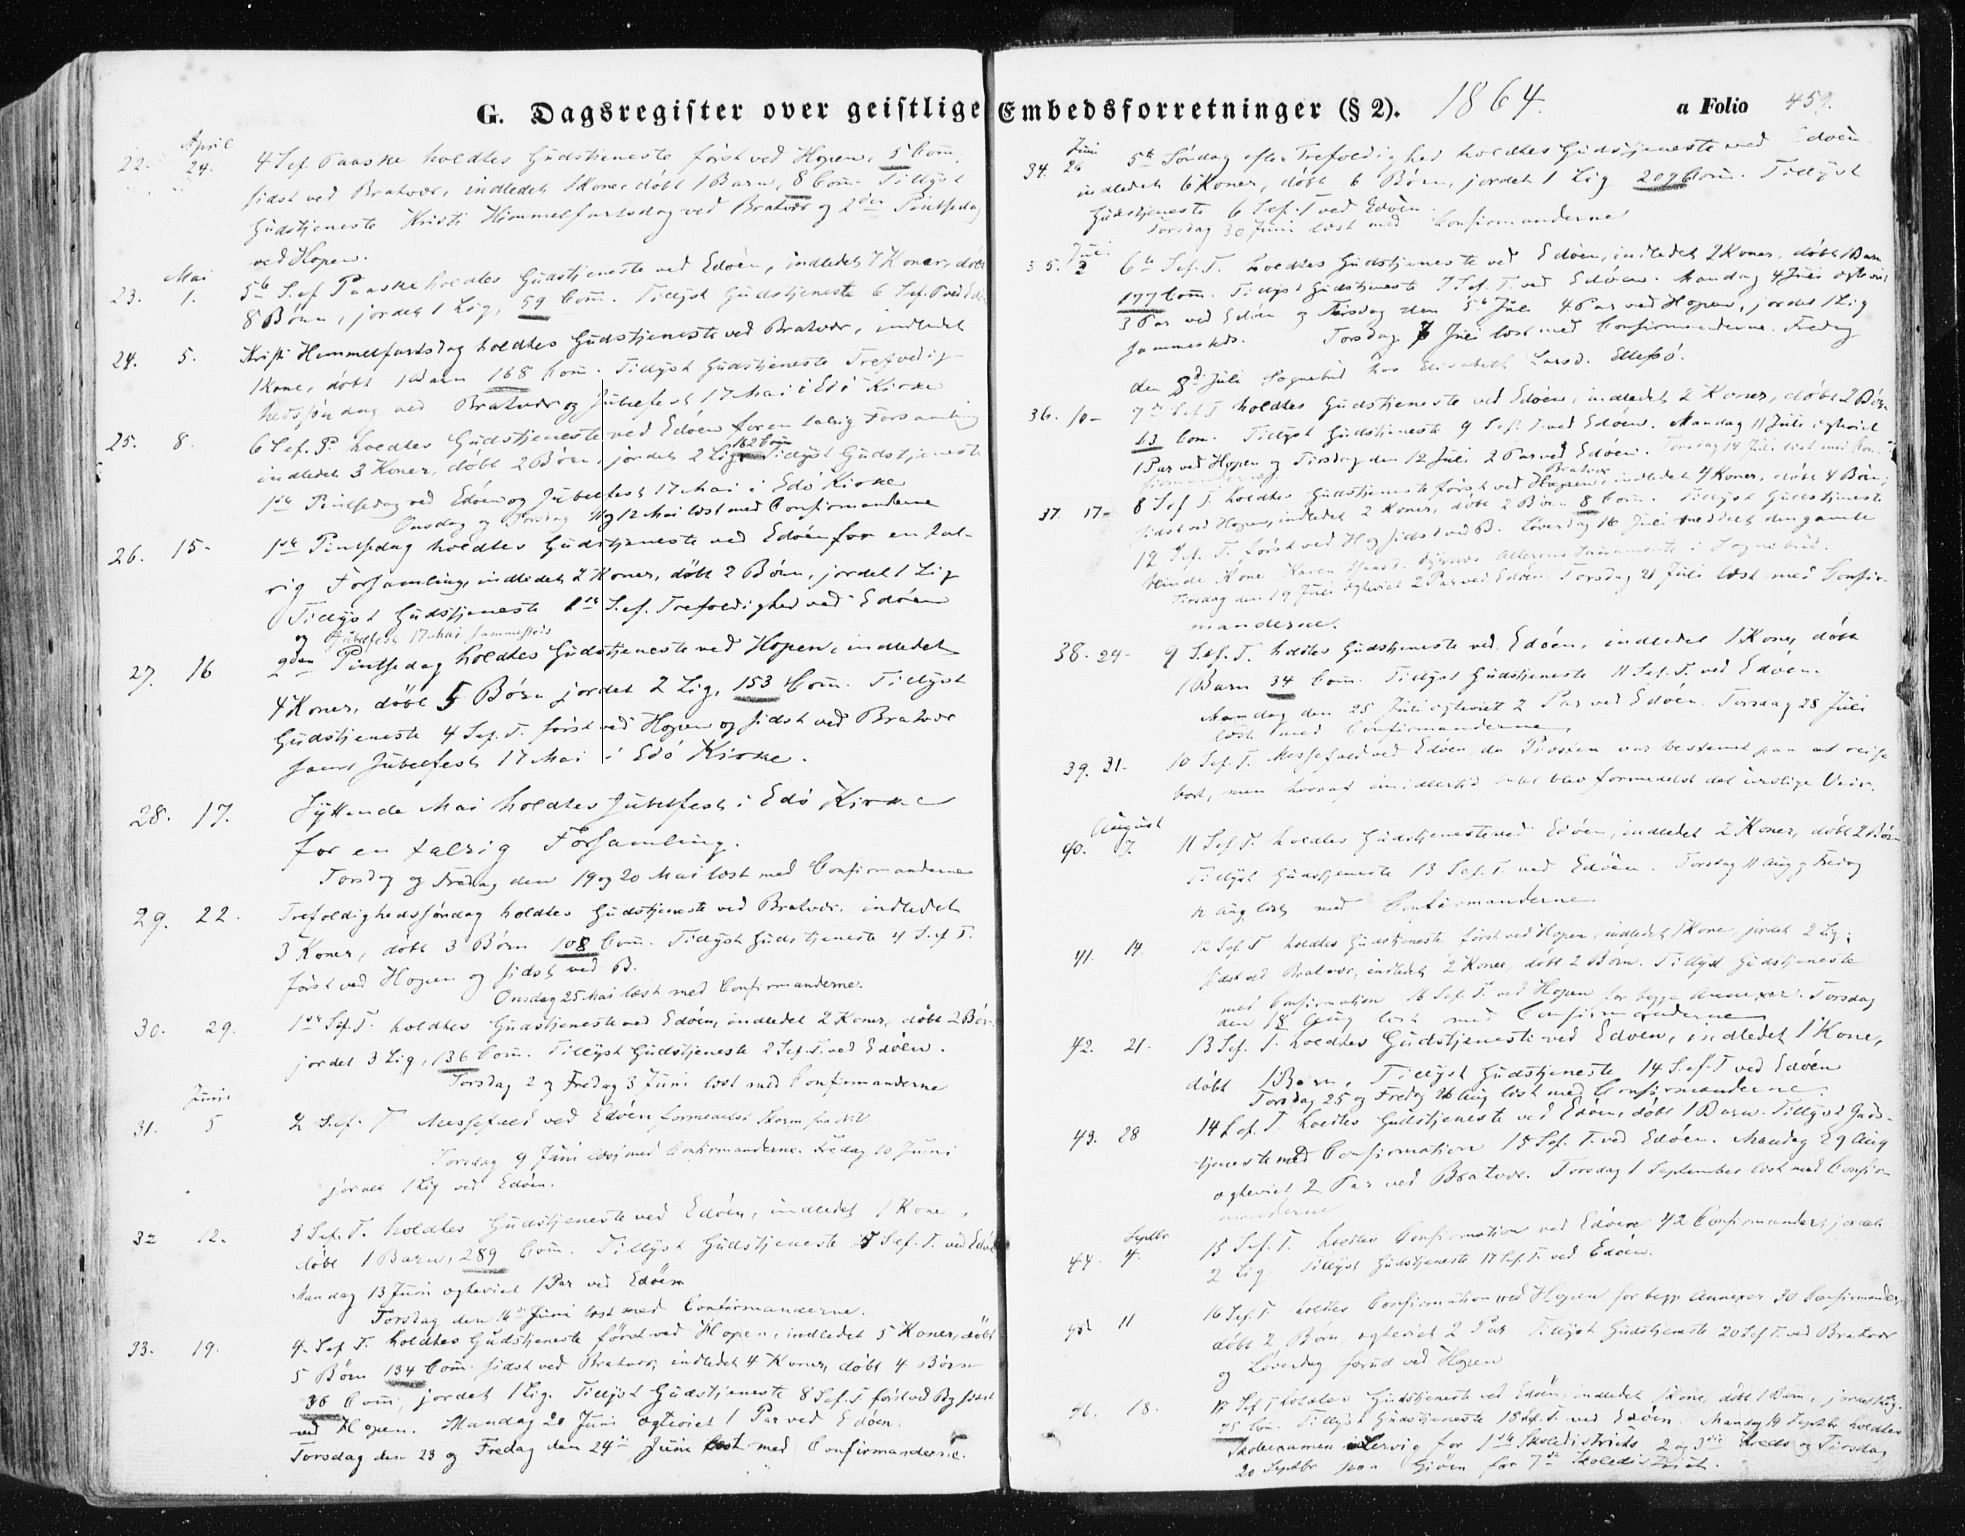 G. Dagsregister over geistlige Embedsforretninger (§ 2). 1864. a Folio 459.
April
22. 24. 4 S.ef. Paaske holdtes Gudstjeneste först ved Hopen, 5 Com.
sidst ved Bratvær, indledet 1 Kone, döbt 1 Barn, 8 Com. Tillyst
Gudstjeneste Kristi Himmelfartsdag ved Bratvær og 2den Pintsedag
ved Hopen.
Mai
23. 1. 5te S.ef Paaske holdtes Gudstjeneste ved Edöen, indledet 7 Koner, döbt
8 Börn, jordet 1 Lig, 59 Com. Tillyst Gudstjeneste 6 S.ef. P ved Edö
24. 5. Kristi Himmelfartsdag holdtes Gudstjeneste ved Bratvær, indledet
1 Kone, döbt 1 Barn 168 Com. Tillyst Gudstjeneste Trefoldig-
hedssöndag ved Bratvær og Jubelfest 17 Mai i Edö Kirke
25. 8. 6 S.ef. P. holdtes Gudstjeneste ved Edöen for en talrig Forsamling
indledet 3 Koner, döbt 2 Börn, jordet 2 Lig, 162 Com Tillyst Gudstjeneste
1ste Pintsedag ved Edöen og Jubelfest 17 Mai i Edö Kirke
Onsdag og Torsdag 11 og 12 Mai læst med Confirmanderne
26. 15- 1ste Pintsedag holdtes Gudstjeneste ved Edöen for en tal-
rig Forsamling, indledet 2 Koner, döbt 2 Börn, jordet 1 Lig
Tillyst Gudstjeneste 1ste S.ef. Trefoldighed ved Edöen
og Jubelfest 17 Mai sammesteds
27. 16 2den Pintsedag holdtes Gudstjeneste ved Hopen, indledet
4 Koner, döbt 5 Börn jordet 2 Lig, 153 Com. Tillyst
Gudstjeneste 4 S.ef. T. först ved Hopen og sidst ved Bratvær
samt Jubelfest 17 Mai i Edö Kirke.
28. 17. Syttende Mai holdtes Jubelfest i Edö Kirke
for en talrig Forsamling.
Torsdag og Fredag den 19 og 20 Mai læst med Confirmanderne
29. 22. Trefoldighedssöndag holdtes Gudstjeneste ved Bratvær. indledet
3 Koner, döbt 3 Börn 108 Com. Tillyst Gudstjeneste 4 S.ef T.
först ved Hopen og sidst ved B.
Onsdag 25 Mai læst med Confirmanderne.
30. 29. 1ste S.ef. T. holdtes Gudstjeneste ved Edöen, indledet 2 Koner, döbt 2 Bör-
jordet 3 Lig, 136 Com. Tillyst Gudstjeneste 2 S.ef. T. ved Edöen.
Torsdag 2 og Fredag 3 Juni læst med Confirmanderne
Juni
31. 5 2 S.ef. T. Messefald ved Edöen formedelst Storm
Torsdag 9 Juni læst med Confirmanderne. Fredag 10 Juni
jordet 1 Lig ved Edöen.
32 12. 3 S.ef. T. holdtes Gudstjeneste ved Edöen, indledet 1 Kone,
döbt 1 Barn, 289 Com. Tillyst Gudstjeneste 5 S.ef. T. ved Edöen
Mandag 13 Juni egteviet 1 Par ved Edöen
Torsdag den 16de Juni læst med Confirmanderne.
33. 19. 4. S.ef T. holdtes Gudstjeneste först ved Hopen, indledet 5 Koner, döbt
5 Börn 134 Com. sidst ved Bratvær, indledet 4 Koner, döbt 4 Börn
36 Com, jordet 1 Lig. Tillyst Gudstjeneste 8 S.ef. T först ved B og sidst
ved Hopen. Mandag 20 Juni egteviet 1 Par ved Edöen.
Torsdag den 23 og Fredag den 24de Juni læst med Confirmanderne.
Juni
34. 26 5te Söndag efter Trefoldighed holdtes Gudstjeneste ved Edöen
indledet 6 Koner, döbt 6 Börn, jordet 1 Lig 209 Com. Tillyst
Gudstjeneste 6 S.ef. T ved Edöen.
Torsdag 30 Juni læst med Confirmanderne
Juli
35. 3 6te S.ef. T. holdtes Gudstjeneste ved Edöen, indledet 2 Koner, döbt 1 Barn
177 Com. Tillyst Gudstjeneste 7 S.ef. T. ved Edöen. Mandag 4 Juli egteviet
3 Par ved Edöen og Tirsdag den 5te Juli 4 Par ved Hopen, jordet 1 Lig
sammesteds. Torsdag 7 Juli læst med Confirmanderne. Fredag
den 8de Juli Sognebud hos Elisabeth Larsd. Ellefsö.
36. 10- 7de S.ef. T holdtes Gudstjeneste ved Edöen, indledet 2 Koner, döbt 2 Börn
43 Com. Tillyst Gudstjeneste 9 S.ef. T. ved Edöen. Mandag 11 Juli egteviet
1 Par ved Hopen og Tirsdag den 12 Juli 2 Par ved Edöen. Torsdag 14 Juli læst med Con-
firmanderne
37. 17- 8 S.ef T. holdtes Gudstjeneste först ved Bratvær, indledet 4 Koner, döbt 4 Börn,
sidst ved Hopen, indledet 2 Koner, döbt 2 Börn 8 Com. Tillyst Gudstjeneste
12 S.ef. T. först ved H og sidst ved B. Löverdag 16 Juli meddelt den gamle
Kone Karen Alterens Sakramente i Sognebud.
Tirsdag den 19 Juli egteviet 2 Par ved Edöen Torsdag 21 Juli læst med Confir-
manderne.
38. 24- 9 S.ef. T. holdtes Gudstjeneste ved Edöen, indledet 1 Kone, döbt
1 Barn 34 Com. Tillyst Gudstjeneste 11 S.ef. T. ved Edöen.
Mandag den 25 Juli egteviet 2 Par ved Edöen. Torsdag 28 Juli
læst med Confirmanderne
39. 31- 10 S.ef. T. Messefald ved Edöen, da Præsten var bestemt paa at reise
bort, men hvoraf imidlertid intet blev formedelst det urolige Veir.
August
40. 7. 11 S.ef. T. holdtes Gudstjeneste ved Edöen, indledet 2 Koner, döbt 2 Börn
Tillyst Gudstjeneste 13 S.ef. T. ved Edöen. Torsdag 11 Aug og Fredag
12 Aug læst med Confirmanderne
41. 14. 12 S.ef. T holdtes Gudstjeneste först ved Hopen, indledet 1 Kone jordet 2 Lig;
sidst ved Bratvær, indledet 2 Koner, döbt 2 Börn. Tillyst Gudstjeneste
med Confirmation 16 S.ef. T. ved Hopen for begge Annexer. Torsdag
den 18 Aug læst med Confirmanderne
42. 21. 13 S.ef. T. holdtes Gudstjeneste ved Edöen, indledet 1 Kone,
döbt 1 Barn, Tillyst Gudstjeneste 14 S.ef. T ved Edöen
Torsdag 25 og Fredag 26 Aug læst med Confirmanderne.
43. 28 14 S.ef. T. holdtes Gudstjeneste ved Edöen, döbt 1 Barn. Tillyst Guds-
tjeneste med Confirmation 15 S.ef. T. ved Edöen. Mandag 29 Aug
egteviet 2 Par ved Bratvær. Torsdag 1 September læst med Confir-
manderne
Septbr
44. 4. 15 S.ef. T. holdtes Confirmation ved Edöen 42 Confirmander, jordet
2 Lig. Tillyst Gudstjeneste 17 S.ef. T. ved Edöen.
45. 11 16 S.ef. T holdtes Confirmation ved Hopen for begge Annexer 30 Confirmander,
döbt 2 Börn, egteviet 2 Par Tillyst Gudstjeneste 20 S.ef T. ved Bratvær
og Löverdag forud ved Hopen
46. 18. 17 S.ef T holdtes Gudstjeneste ved Edöen, indledet 1 Kone, döbt 1 Barn, jordet 1 Lig.
75 Com. Tillyst Gudstjeneste 18 S.ef. T. ved Edöen. Mandag 19 Septbr holdtes
Skoleexamen i Lervig for 1ste Skoledistrikts 2 og 3die Kreds og Tirsdag
20 Septbr paa for 7de Skoledistrikt.